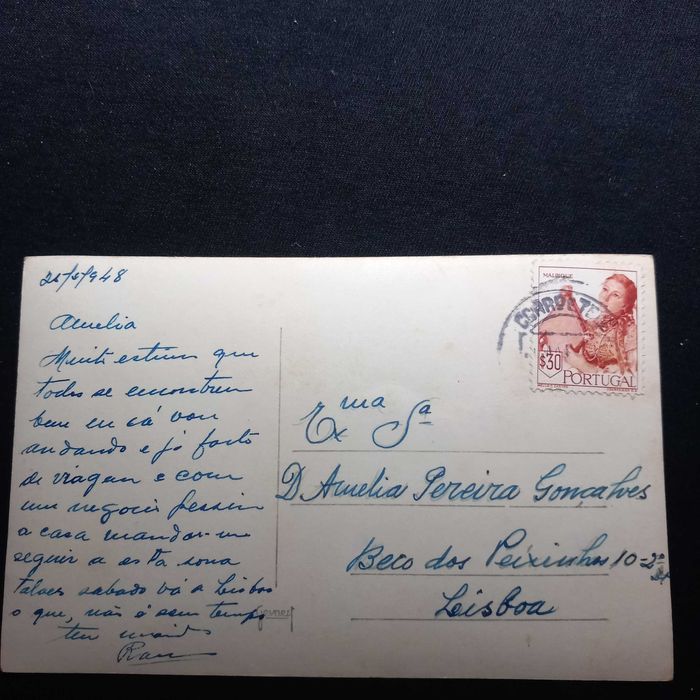 948
Amelia
Muito estimo que
todos se encontrem
bem eu cá vou
andando e já farto
de viagem e com
um negocio pessimo
a casa mandou-me
seguir a esta zona
talvez sabado vá a Lisboa
o que, não é sem tempo
teu marido
MALPIQUE
CORREIO
$30
PORTUGAL
Exma Sa
D. Amelia Pereira Gonçalves
Beco dos Peixinhos 10=2º
Lisboa
Gevaert